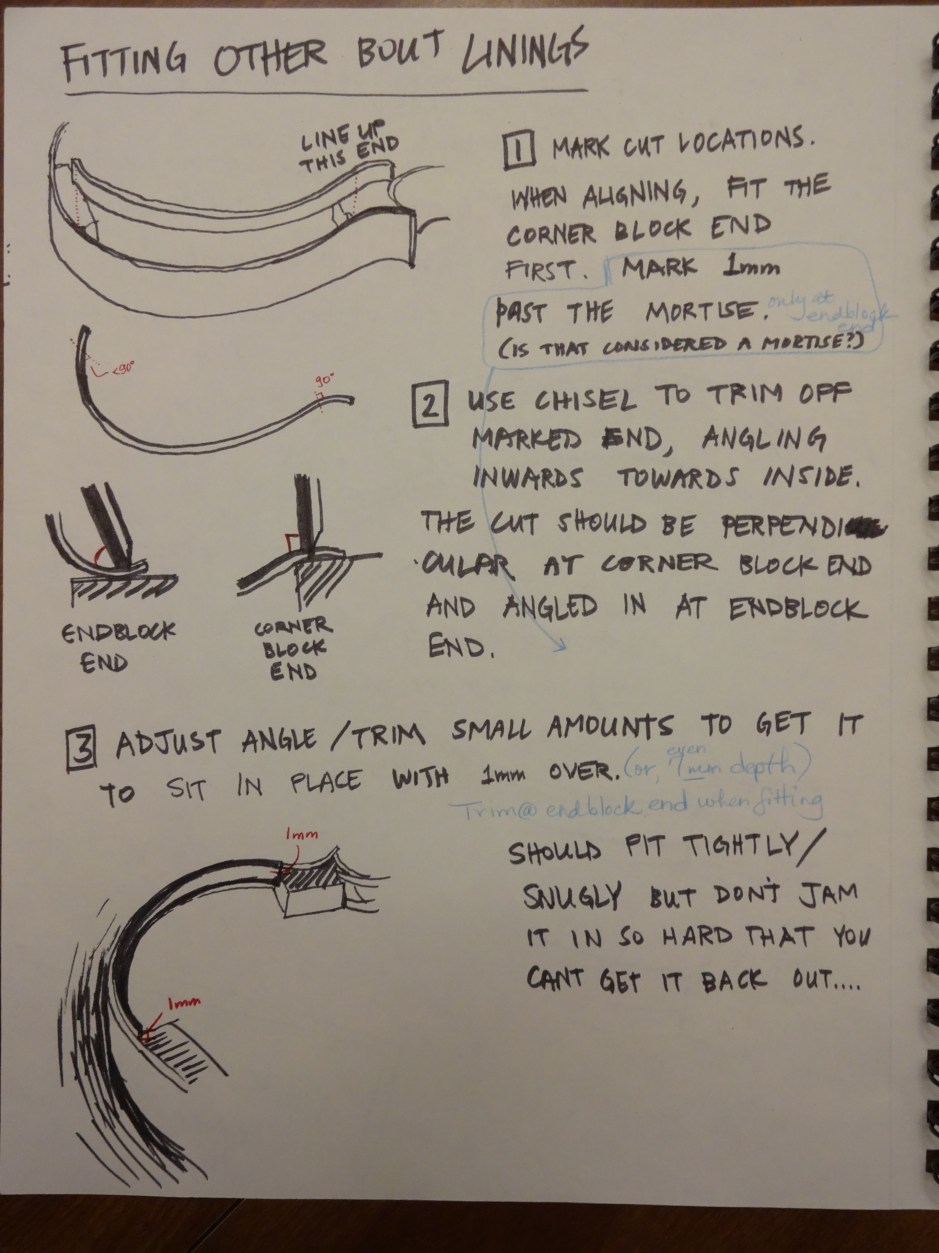 FITTING OTHER BOUT LININGS
LINE UP
THIS END
1 MARK CUT LOCATIONS.
WHEN ALIGNING, FIT THE
CORNER BLOCK END
FIRST. MARK 1mm
PAST THE MORTISE. only at
endblock
end
(IS THAT CONSIDERED A MORTISE?)
<90°
90°
2 USE CHISEL TO TRIM OFF
MARKED END, ANGLING
INWARDS TOWARDS INSIDE.
THE CUT SHOULD BE PERPENDI
CULAR AT CORNER BLOCK END
AND ANGLED IN AT ENDBLOCK
END.
ENDBLOCK
END
CORNER
BLOCK
END
3 ADJUST ANGLE/TRIM SMALL AMOUNTS TO GET IT
TO SIT IN PLACE WITH 1mm OVER. (or, even 7mm depth)
Trim @ endblock end when fitting
1mm
1mm
SHOULD FIT TIGHTLY/
SNUGLY BUT DON'T JAM
IT IN SO HARD THAT YOU
CANT GET IT BACK OUT....